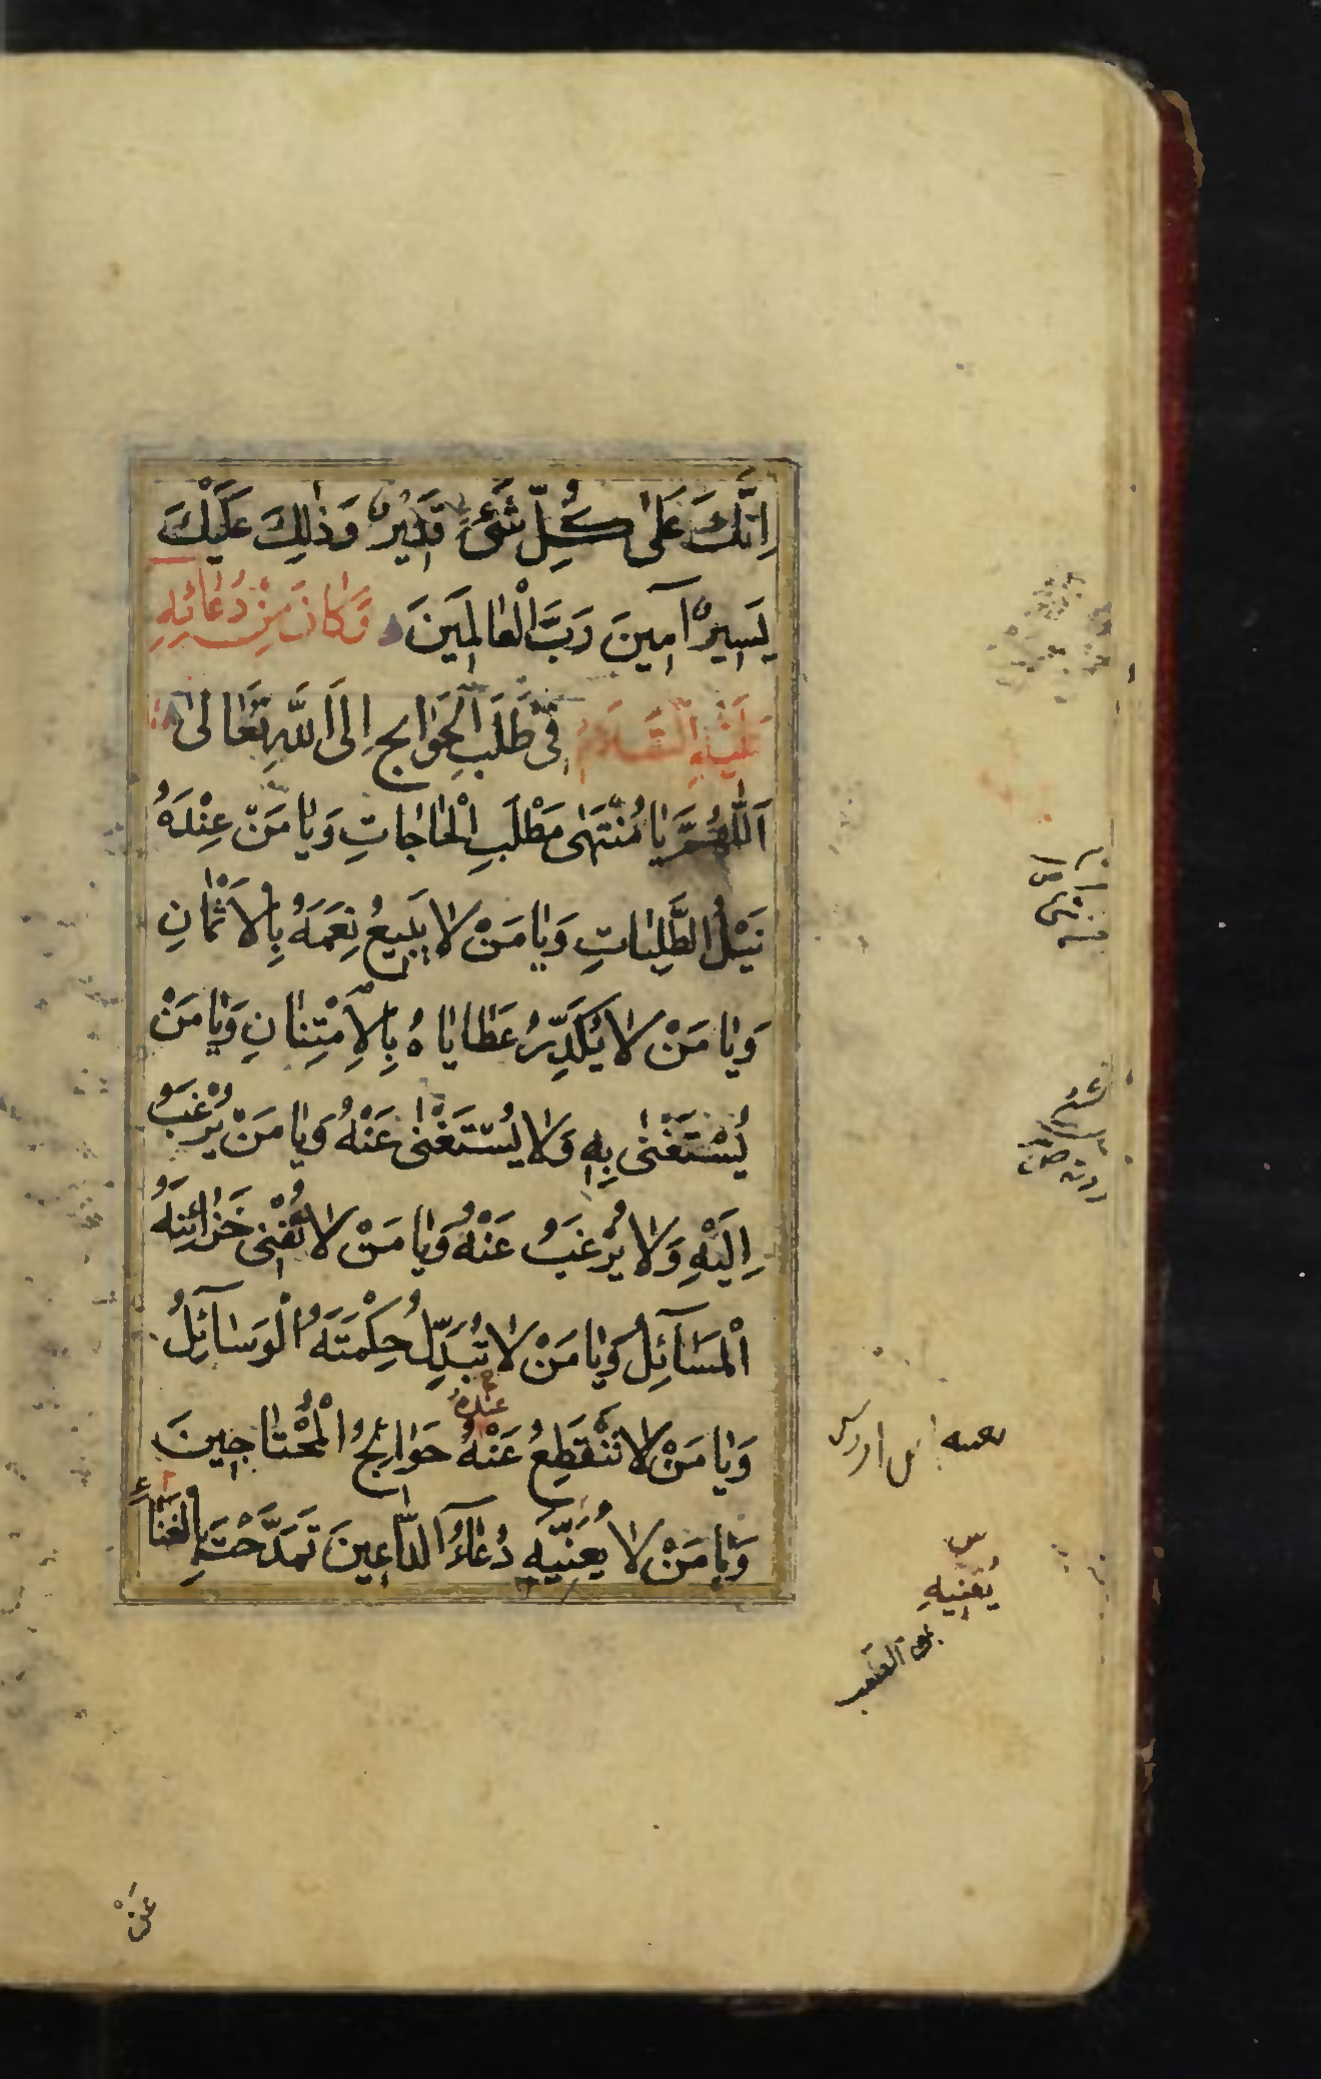 اِنَّكَ عَلٰى كُلِّ شَىْءٍ قَدٖيرٌ وَذٰلِكَ عَلَيْكَ
يَسٖيرٌ آمٖينَ رَبَّ الْعٰالَمٖينَ وَكٰانَ مِنْ دُعٰائِهِ
عَلَيْهِ السَّلَامُ فٖى طَلَبِ الْحَوٰايِجِ اِلَى اللّٰهِ تَعٰالىٰ
اَللّٰهُمَّ يٰا مُنْتَهٰى مَطْلَبِ الْحٰاجٰاتِ وَيٰا مَنْ عِنْدَهُ
نَيْلُ الطَّلِبٰاتِ وَيٰا مَنْ لٰا يَبٖيعُ نِعَمَهُ بِالْاَثْمٰانِ
وَيٰا مَنْ لٰا يُكَدِّرُ عَطٰايٰاهُ بِالْاِمْتِنٰانِ وَيٰا مَنْ
يُسْتَغْنٰى بِهٖ وَلٰا يُسْتَغْنٰى عَنْهُ وَيٰا مَنْ يُرْغَبُ
اِلَيْهِ وَلٰا يُرْغَبُ عَنْهُ وَيٰا مَنْ لٰا تُفْنٖى خَزٰائِنَهُ
الْمَسٰآئِلُ وَيٰا مَنْ لٰا تُبَدِّلُ حِكْمَتَهُ الْوَسٰآئِلُ
عِنْدَهُ
وَيٰا مَنْ لٰا تَنْقَطِعُ عَنْهُ حَوٰائِجُ الْمُحْتٰاجٖينَ
وَيٰا مَنْ لٰا يُعَنّٖيهِ دُعٰآءُ الدّٰاعٖينَ تَمَدَّحْتَ بِالْغَنٰاءِ
س
يُعْنٖيهِ
عَنْ